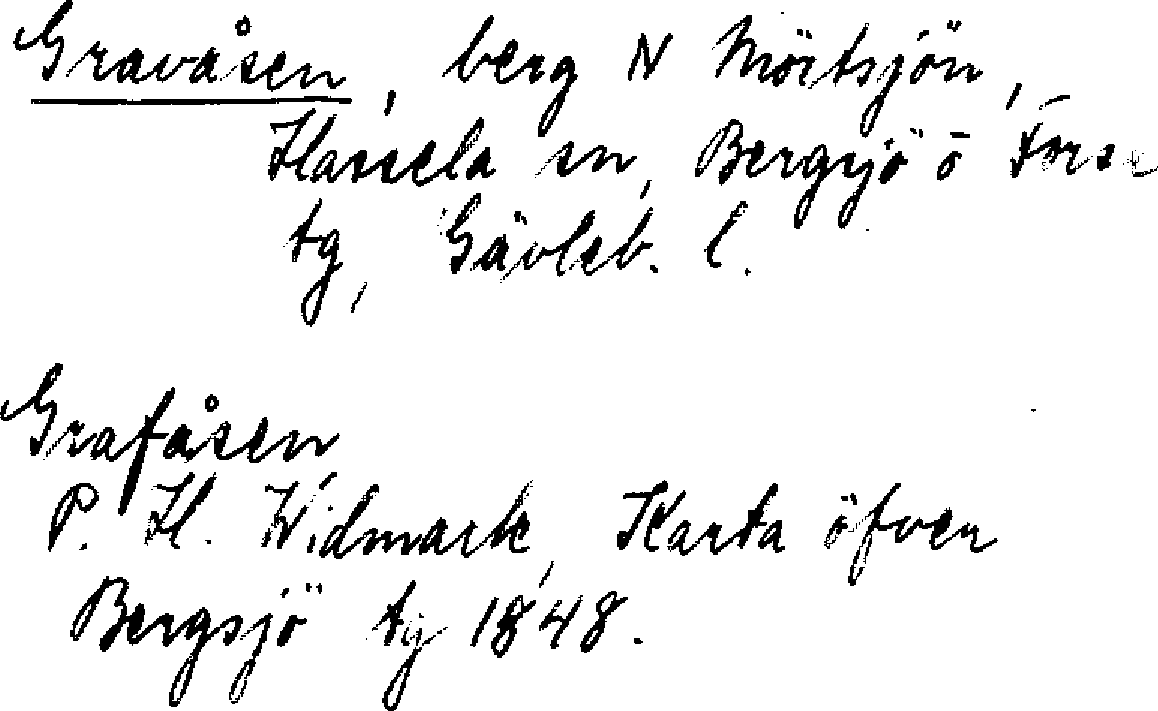 Gravåsen, berg N Möitsjön,
Hassela sn, Bergsjö o Forsa
tg, Gävleb. l.
Grafåsen
P. H. Widmark, Karta öfver
Bergsjö tg 1848.